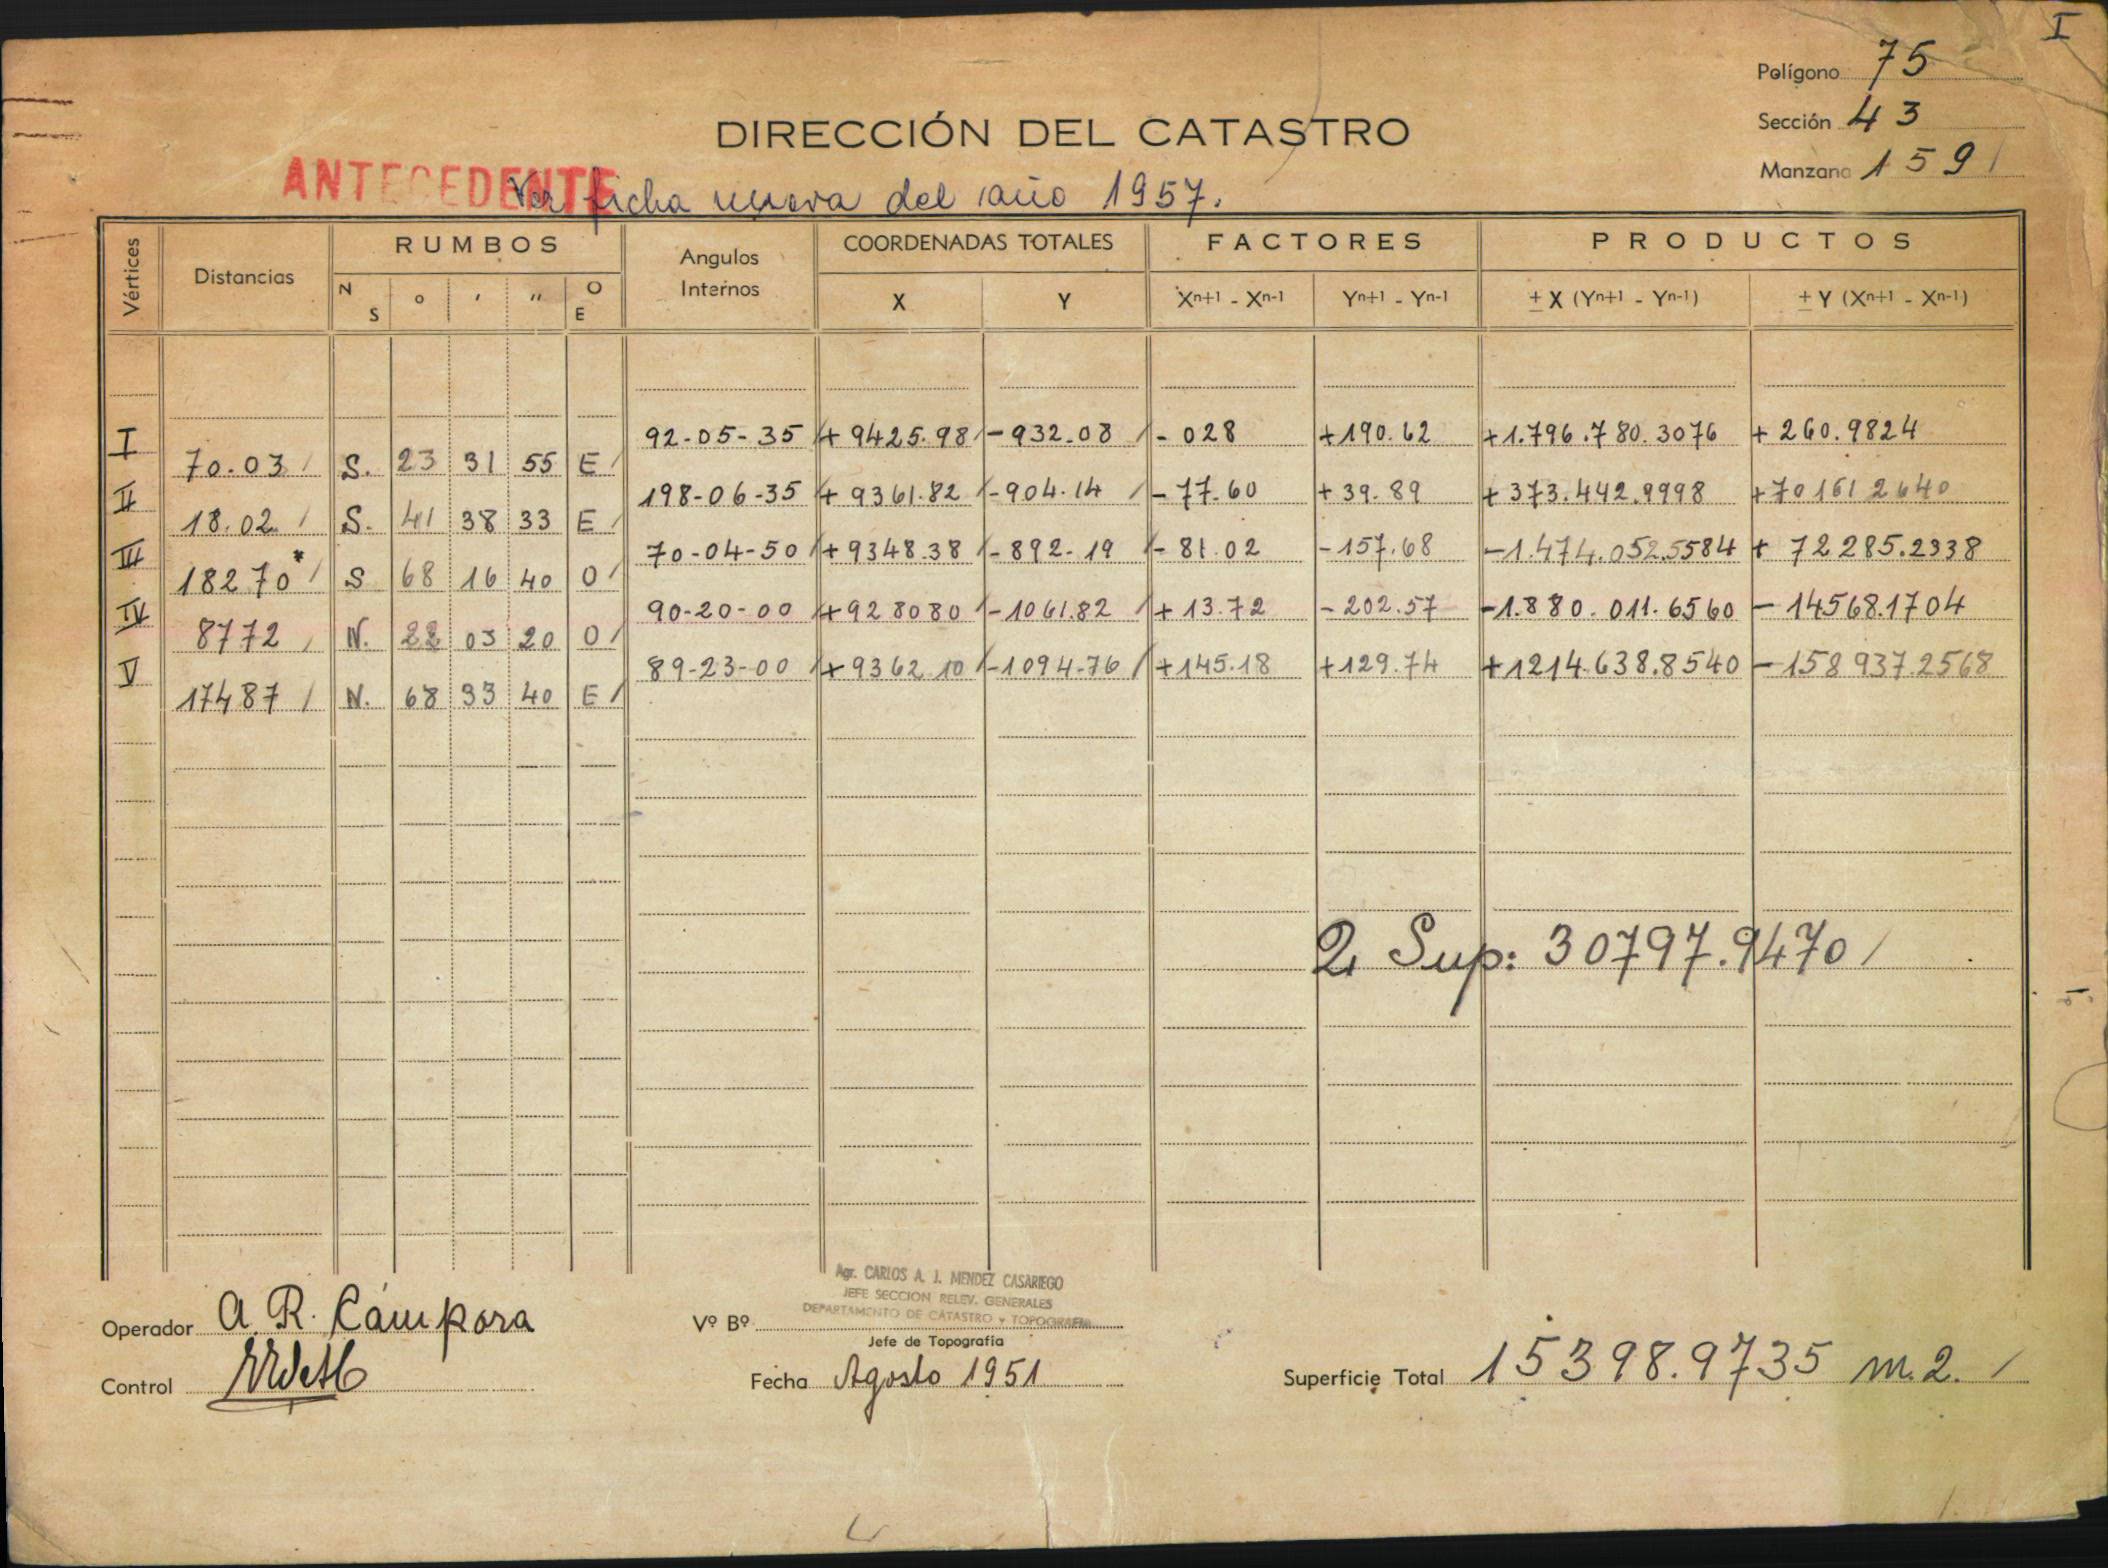 I
Polígono 75
Sección 43
Manzana 159
DIRECCIÓN DEL CATASTRO
ANTECEDENTE
Ver ficha nueva del año 1957.
Vértices Distancias RUMBOS Angulos Internos COORDENADAS TOTALES FACTORES PRODUCTOS
N S ° ' " O E X Y Xn+1 - Xn-1 Yn+1 - Yn-1 ± X (Yn+1 - Yn-1) ± Y (Xn+1 - Xn-1)
I 92-05-35 +9425.98 -932.08 - 028 +190.62 +1.796.780.3076 + 260.9824
70.03 S. 23 31 55 E
II 198-06-35 +9361.82 -904.14 -77.60 +39.89 +373.442.9998 +70161 2640
18.02 S. 41 38 33 E
III 70-04-50 +9348.38 -892-19 -81.02 -157.68 -1.474.052.5584 + 72285.2338
18270* S 68 16 40 O
IV 90-20-00 +928080 -1061.82 +13.72 -202.57 -1.880.011.6560 - 14568.1704
8772 N. 22 03 20 O
V 89-23-00 +9362.10 -1094-76 +145.18 +129.74 +1214.638.8540 -158937.2568
17487 N. 68 33 40 E
2 Sup: 30797.9470
Agr. CARLOS A. J. MENDEZ CASARIEGO
JEFE SECCION RELEV. GENERALES
DEPARTAMENTO DE CATASTRO Y TOPOGRAFIA
Operador A. R. Cámpora
Vº Bº
Jefe de Topografía
Control
Fecha Agosto 1951
Superficie Total 15398.9735 m.2.